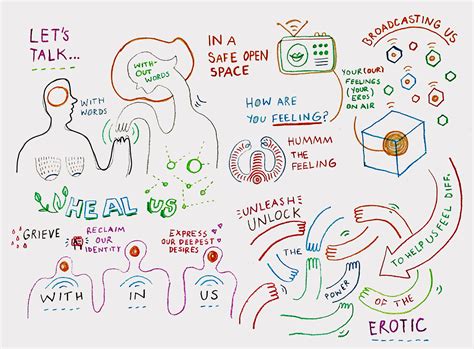 LET'S
TALK...
WITH
WORDS
WITH-
OUT
WORDS
IN A
SAFE OPEN
SPACE
BROADCASTING US
YOUR(OUR)
FEELINGS
(YOUR
EROS
ON AIR
HOW ARE
YOU FEELING?
HUMMM
THE
FEELING
HEAL US
GRIEVE
RECLAIM
OUR
IDENTITY
EXPRESS
OUR DEEPEST
DESIRES
WITH IN US
UNLEASH
UNLOCK
THE
POWER
OF THE
EROTIC
TO HELP US FEEL DIFF.